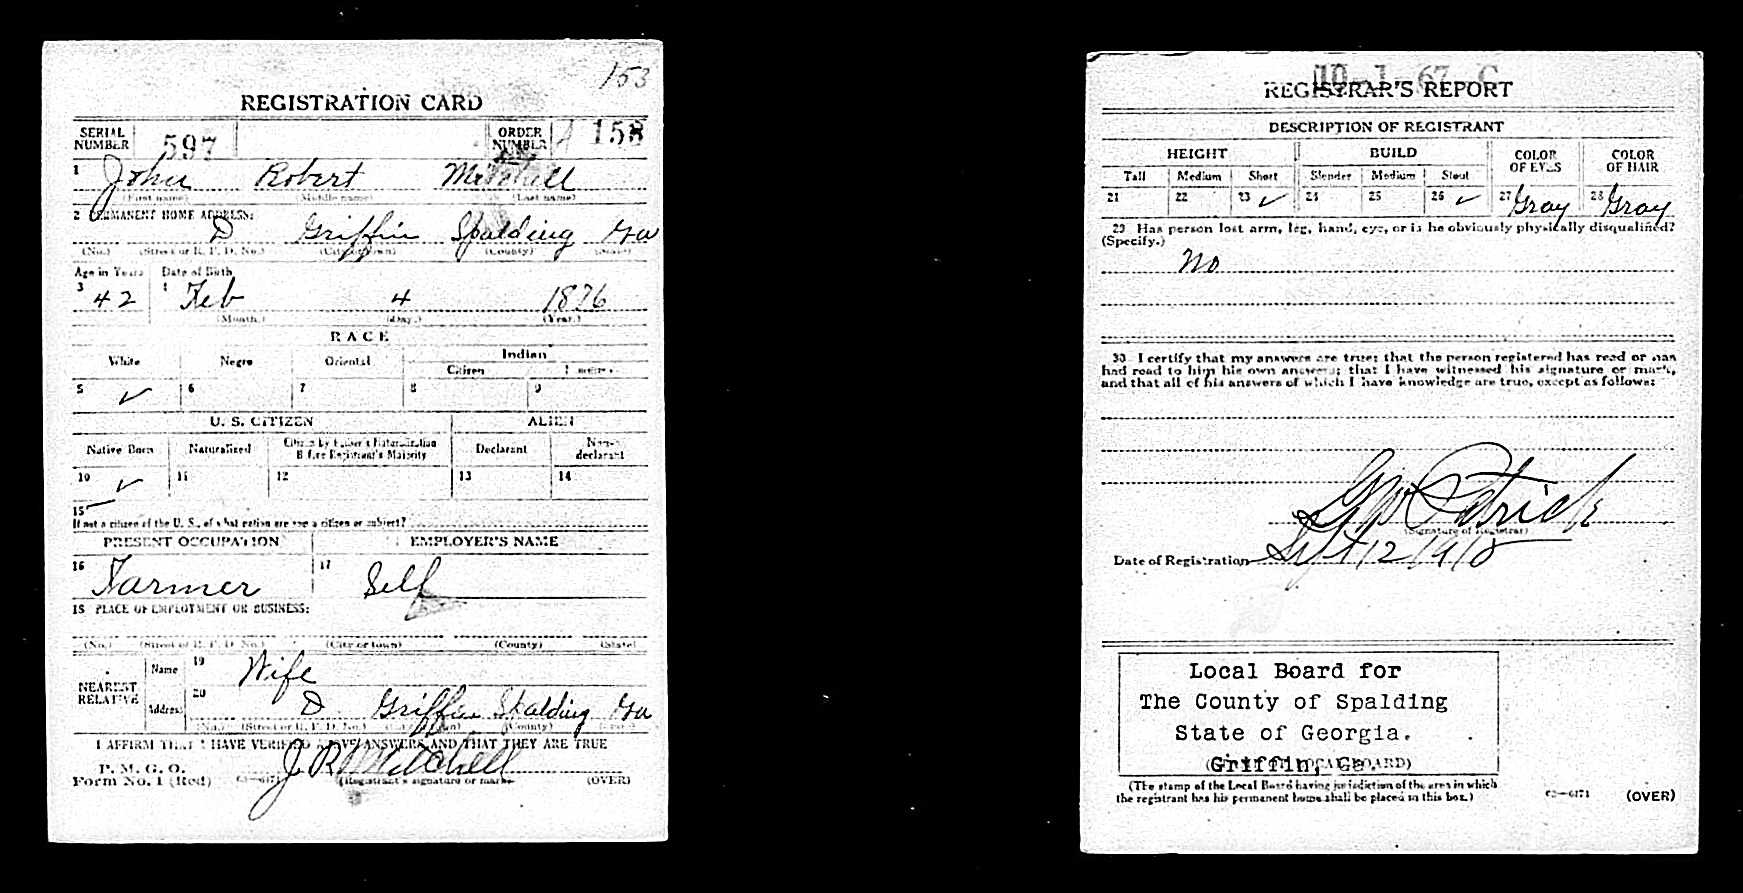 153
REGISTRATION CARD
SERIAL NUMBER 597 ORDER NUMBER A 158
1 John Robert Mitchell
(First name) (Middle name) (Last name)
2 PERMANENT HOME ADDRESS:
D Griffin Spalding Ga
(No.) (Street or R. F. D. No.) (City or town) (County) (State)
Age in Years Date of Birth
3 42 4 Feb 4 1876
(Month.) (Day.) (Year.)
RACE
White Negro Oriental Indian
Citizen
5 ✓ 6 7 8 9
U. S. CITIZEN ALIEN
Native Born Naturalized Citizen by Father's Naturalization Before Registrant's Majority Declarant Non-declarant
10 ✓ 11 12 13 14
15
If not a citizen of the U. S., of what nation are you a citizen or subject?
PRESENT OCCUPATION EMPLOYER'S NAME
16 Farmer 17 Self
18 PLACE OF EMPLOYMENT OR BUSINESS:
(No.) (Street or R. F. D. No.) (City or town) (County) (State)
NEAREST RELATIVE Name 19 Wife
Address 20 D Griffin Spalding Ga
(No.) (Street or R. F. D. No.) (City or town) (County) (State)
I AFFIRM THAT I HAVE VERIFIED ABOVE ANSWERS AND THAT THEY ARE TRUE
P. M. G. O.
Form No. 1 (Red) 03—6171 J R Mitchell (Registrant's signature or mark) (OVER)
10-1-67 C
REGISTRAR'S REPORT
DESCRIPTION OF REGISTRANT
HEIGHT BUILD COLOR OF EYES COLOR OF HAIR
Tall Medium Short Slender Medium Stout
21 22 23 ✓ 24 25 26 ✓ 27 Gray 28 Gray
29 Has person lost arm, leg, hand, eye, or is he obviously physically disqualified?
(Specify.)
No
30 I certify that my answers are true; that the person registered has read or has
had read to him his own answers; that I have witnessed his signature or mark,
and that all of his answers of which I have knowledge are true, except as follows:
Patrick
(Signature of Registrar)
Date of Registration Sept 12 1918
Local Board for
The County of Spalding
State of Georgia.
Griffin, Ga.
(STAMP OF LOCAL BOARD)
(The stamp of the Local Board having jurisdiction of the area in which
the registrant has his permanent home shall be placed in this box.)
03—6171 (OVER)